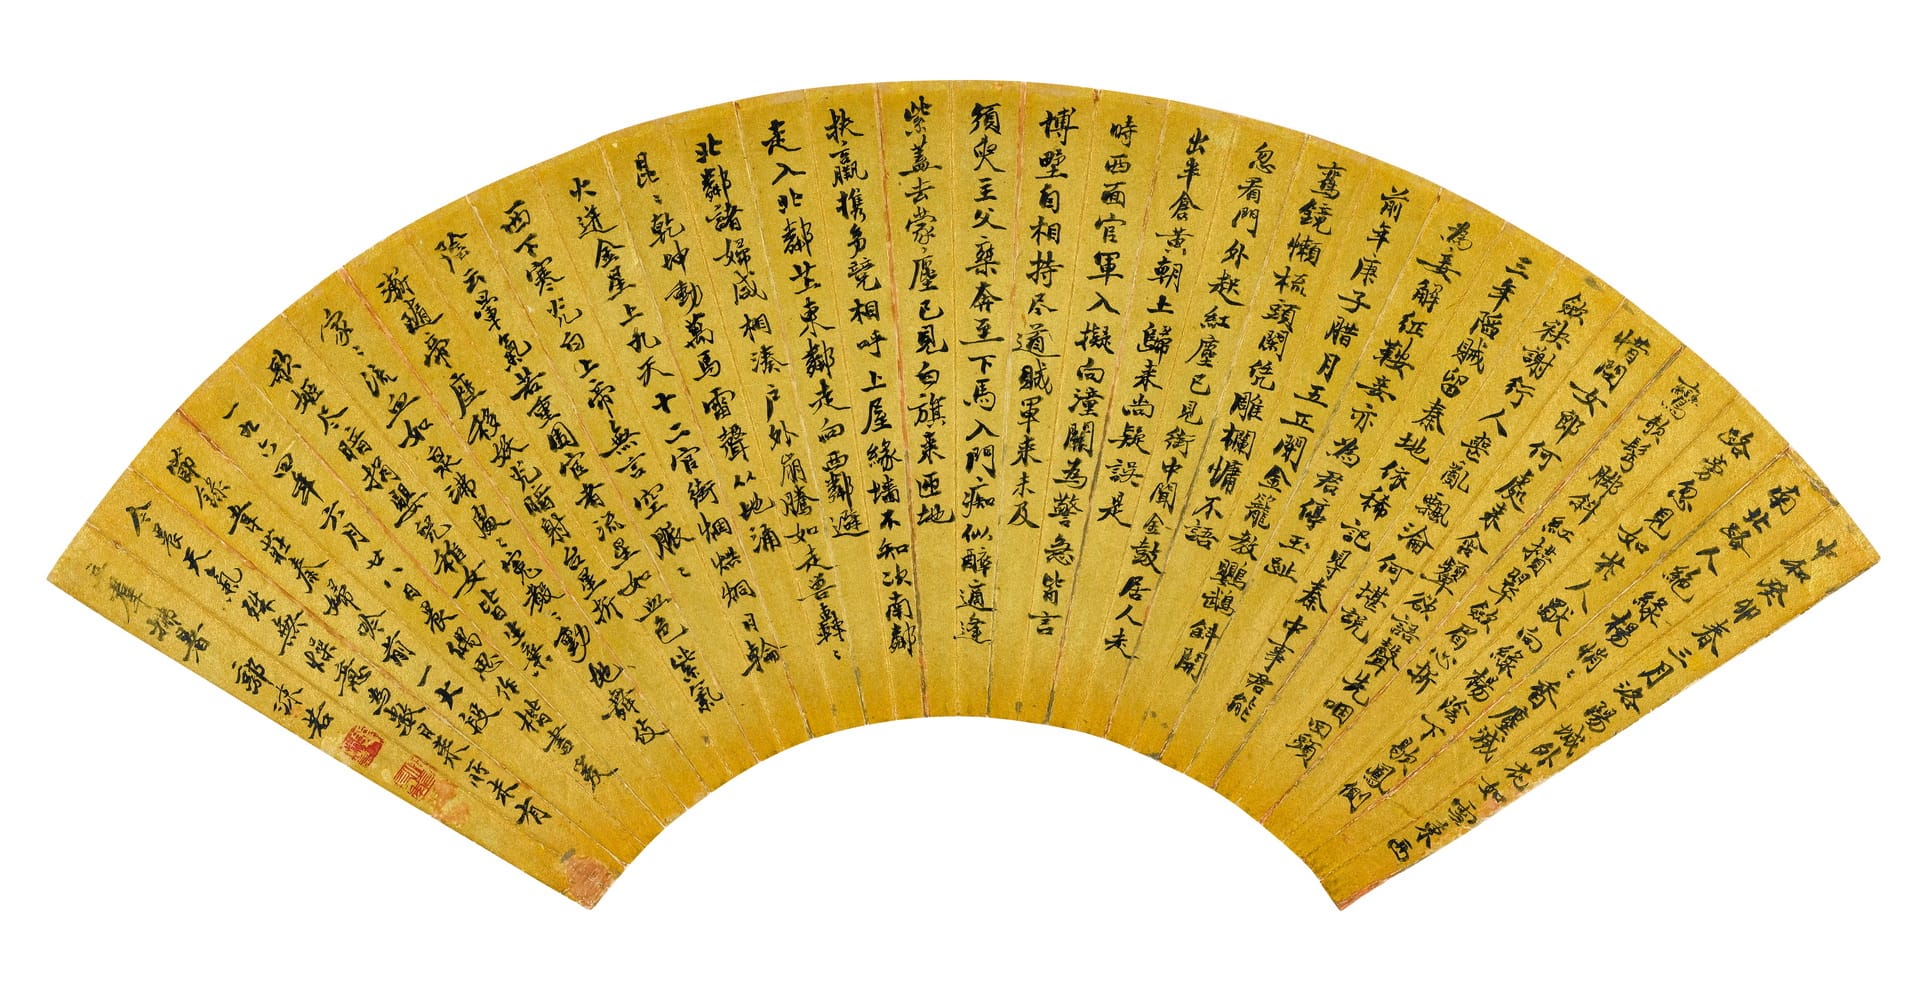 中和癸卯春三月洛陽城外花如雪東西
南北路人絕綠楊悄〻香塵滅
路旁忽見如花人獨向綠楊陰下歇鳳側
鸞欹鬢脚斜紅攢翠斂眉心折
借問女郎何處來含顰欲語聲先咽回頭
斂袂謝行人喪亂飄淪何堪說
三年陷賊留秦地依稀記得秦中事君能
為妾解征鞍妾亦為君停玉趾
前年庚子腊月五正閉金籠教鸚鵡斜開
鸞鏡懶梳頭閑凭雕欄慵不語
忽看門外起紅塵已見街中聞金鼓居人走
出半倉黃朝士歸來尚疑誤是
時西面官軍入擬向潼關為警急皆言
博野自相持尽道賊軍來未及
須臾主父乘奔至下馬入門痴似醉適逢
紫蓋去蒙塵已見白旗來匝地
扶羸携幼競相呼上屋緣墻不知次南鄰
走入北鄰藏東鄰走向西鄰避
北鄰諸婦咸相湊戶外崩騰如走獸轟〻
昆〻乾坤動萬馬雷聲从地涌
火迸金星上九天十二官街烟烘烔日輪
西下寒光白上帝無言空脈〻
陰云暈氣若重圍宦者流星如血色紫氣
漸隨帝座移妖光暗射台星拆
家〻流血如泉沸處〻冤聲〻動地舞伎
歌姬尽暗捐嬰兒稚女皆生棄
一九六四年六月廿八日晨偶思作楷書爰
節錄韋莊秦婦吟前一大段
今晨天氣殊無燥意為數日來所未有
立群揮署 郭沫若